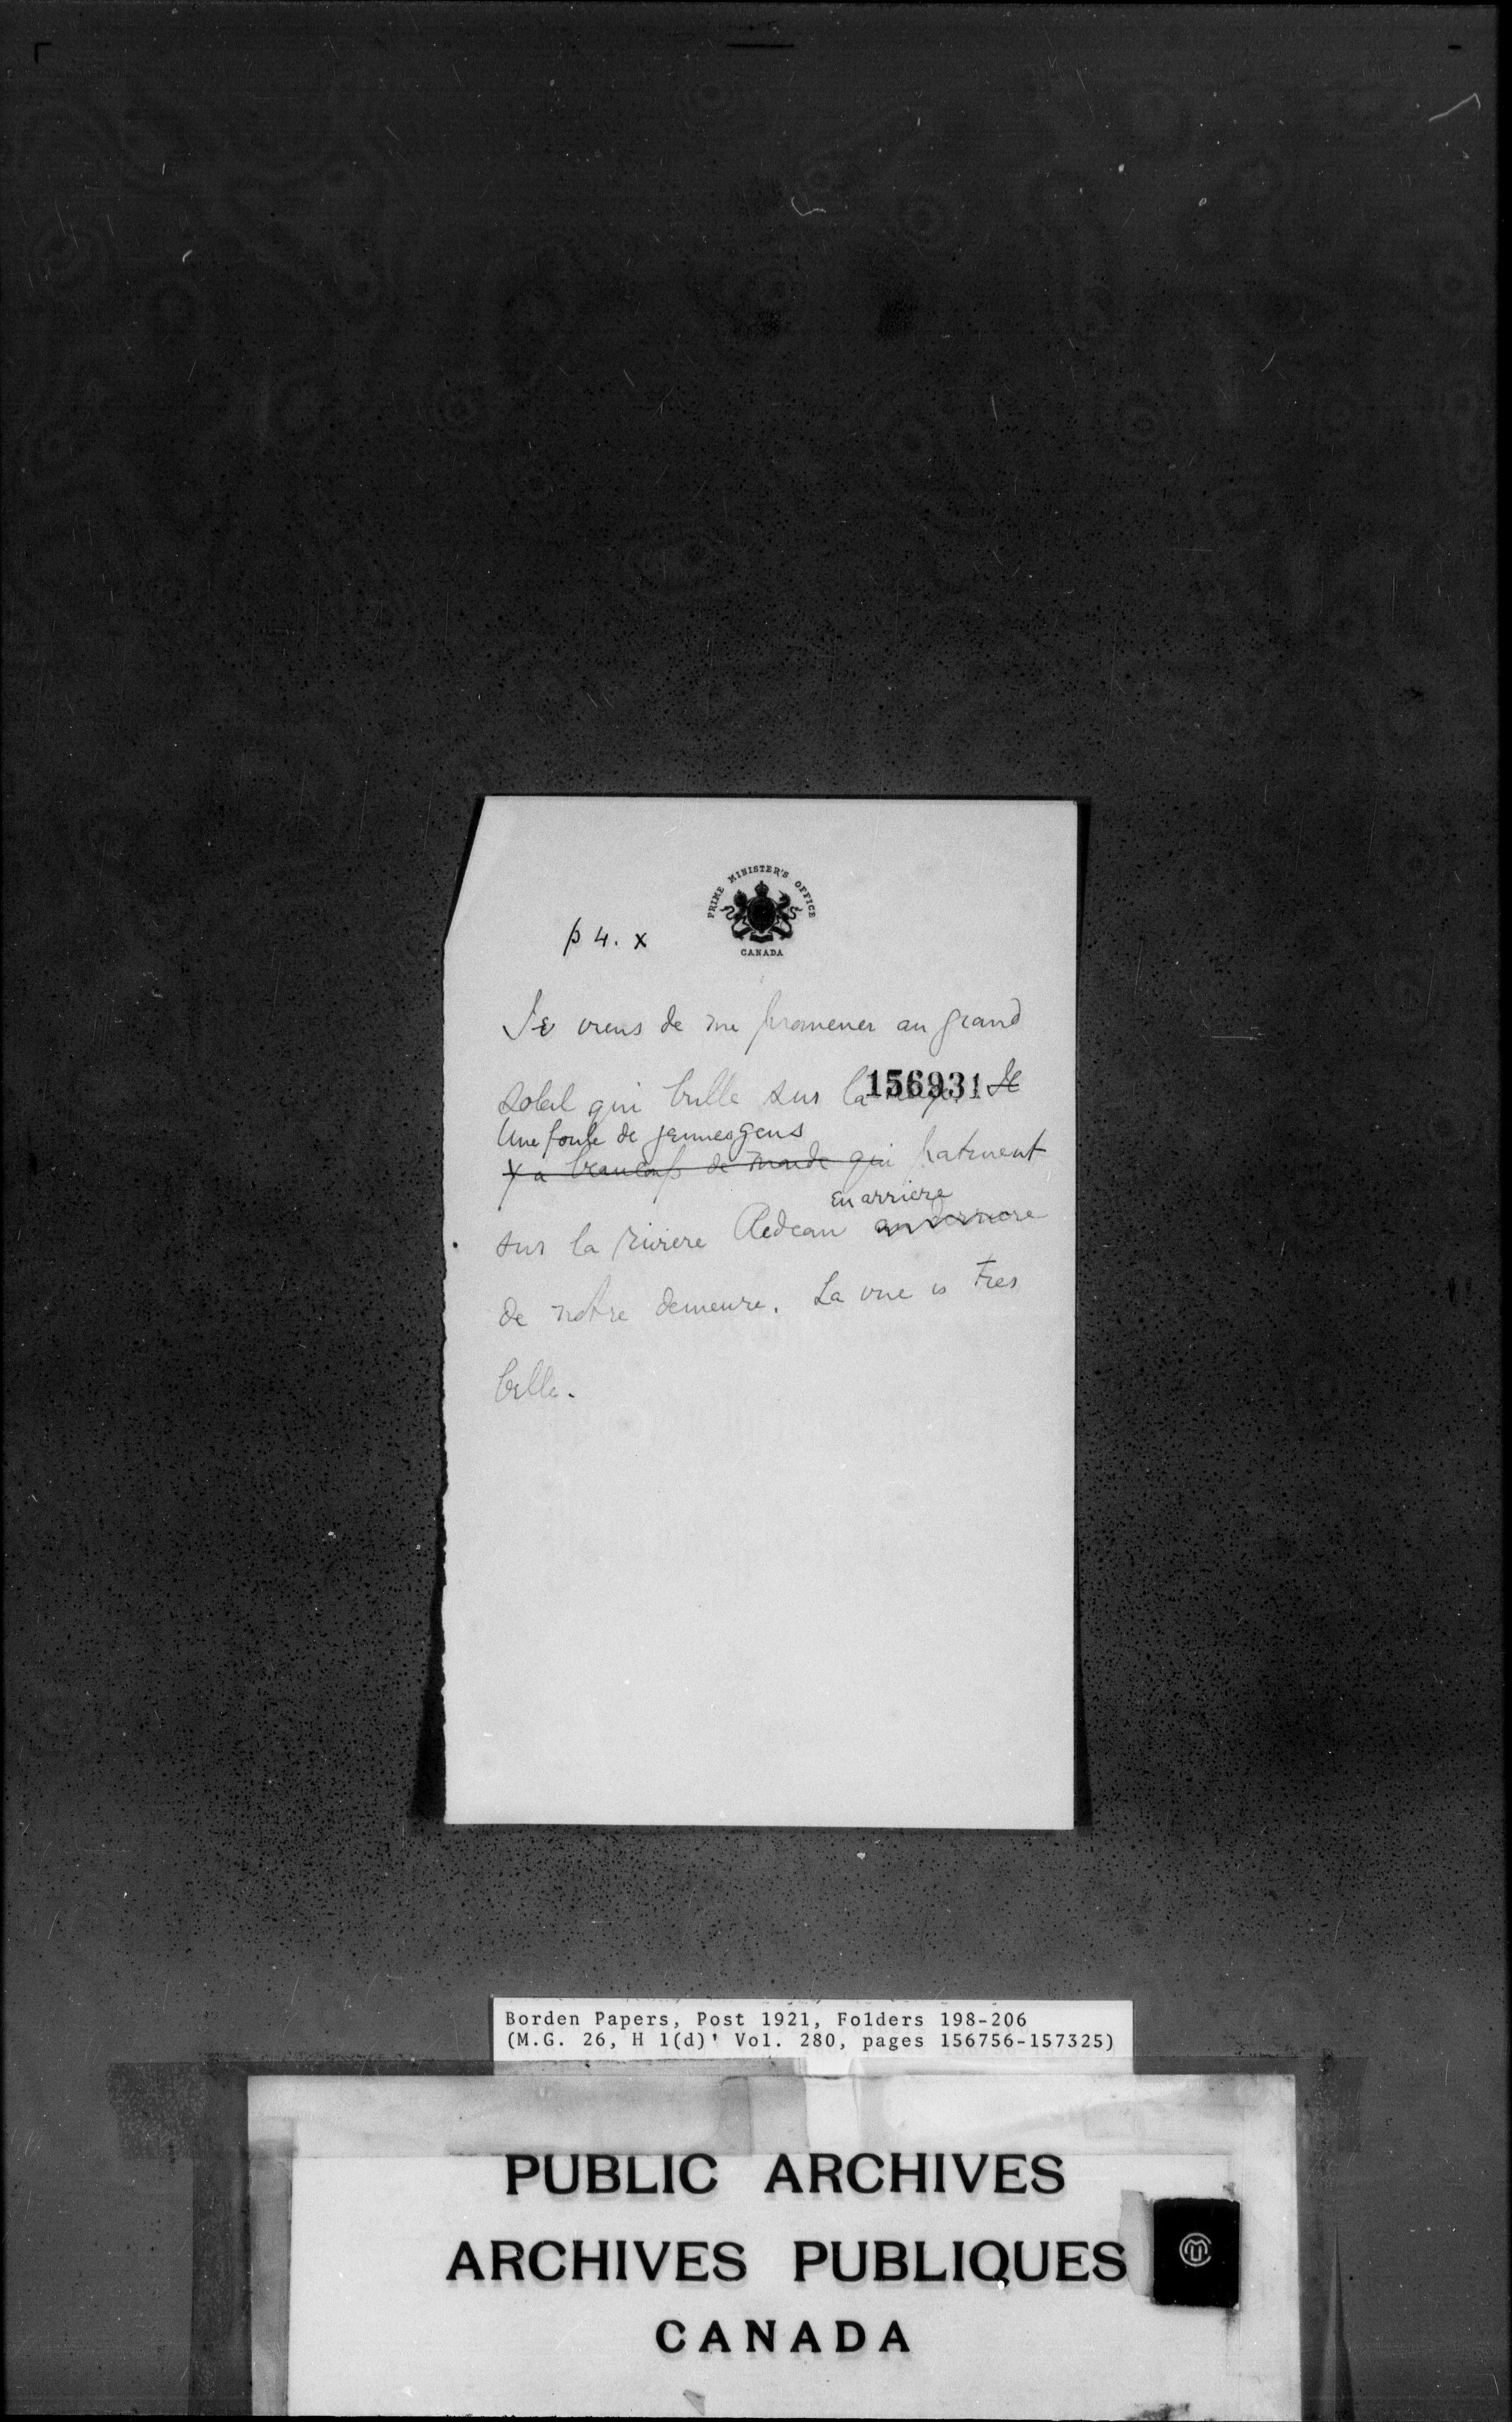 PRIME MINISTER'S OFFICE
CANADA
p 4. x
Je viens de me promener au grand
soleil qui brille sur la 156931 Il
Une foule de jeunes gens
y a beaucoup de monde qui patinent
en arriere
sur la riviere Redeau au derriere
de notre demeure. La vue is tres
belle.
Borden Papers, Post 1921, Folders 198-206
(M.G. 26, H 1(d)' Vol. 280, pages 156756-157325)
PUBLIC ARCHIVES
ARCHIVES PUBLIQUES
CANADA